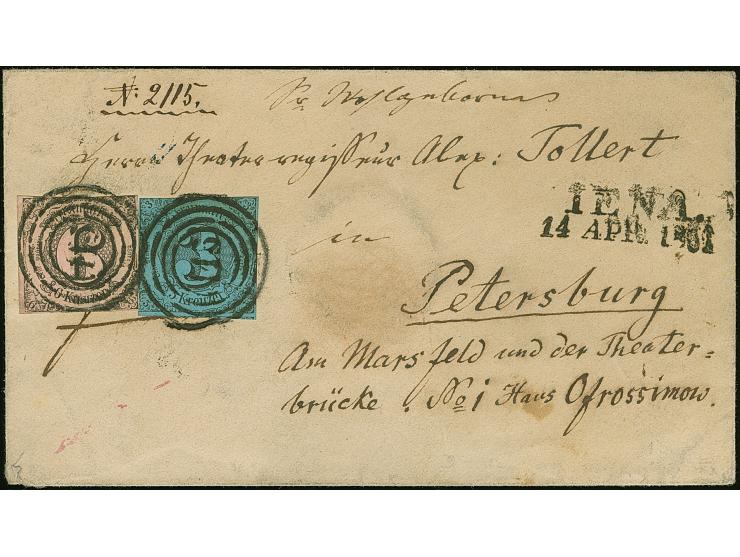 N: 2115.
Sr Wohlgeboren
Herrn Theaterregisseur Alex: Tollert
IENA.
14 APR 1861
in
Petersburg
Am Marsfeld und der Theater=
brücke. No 1 Haus Ofrossimow.
Kreuzer
Kreuzer